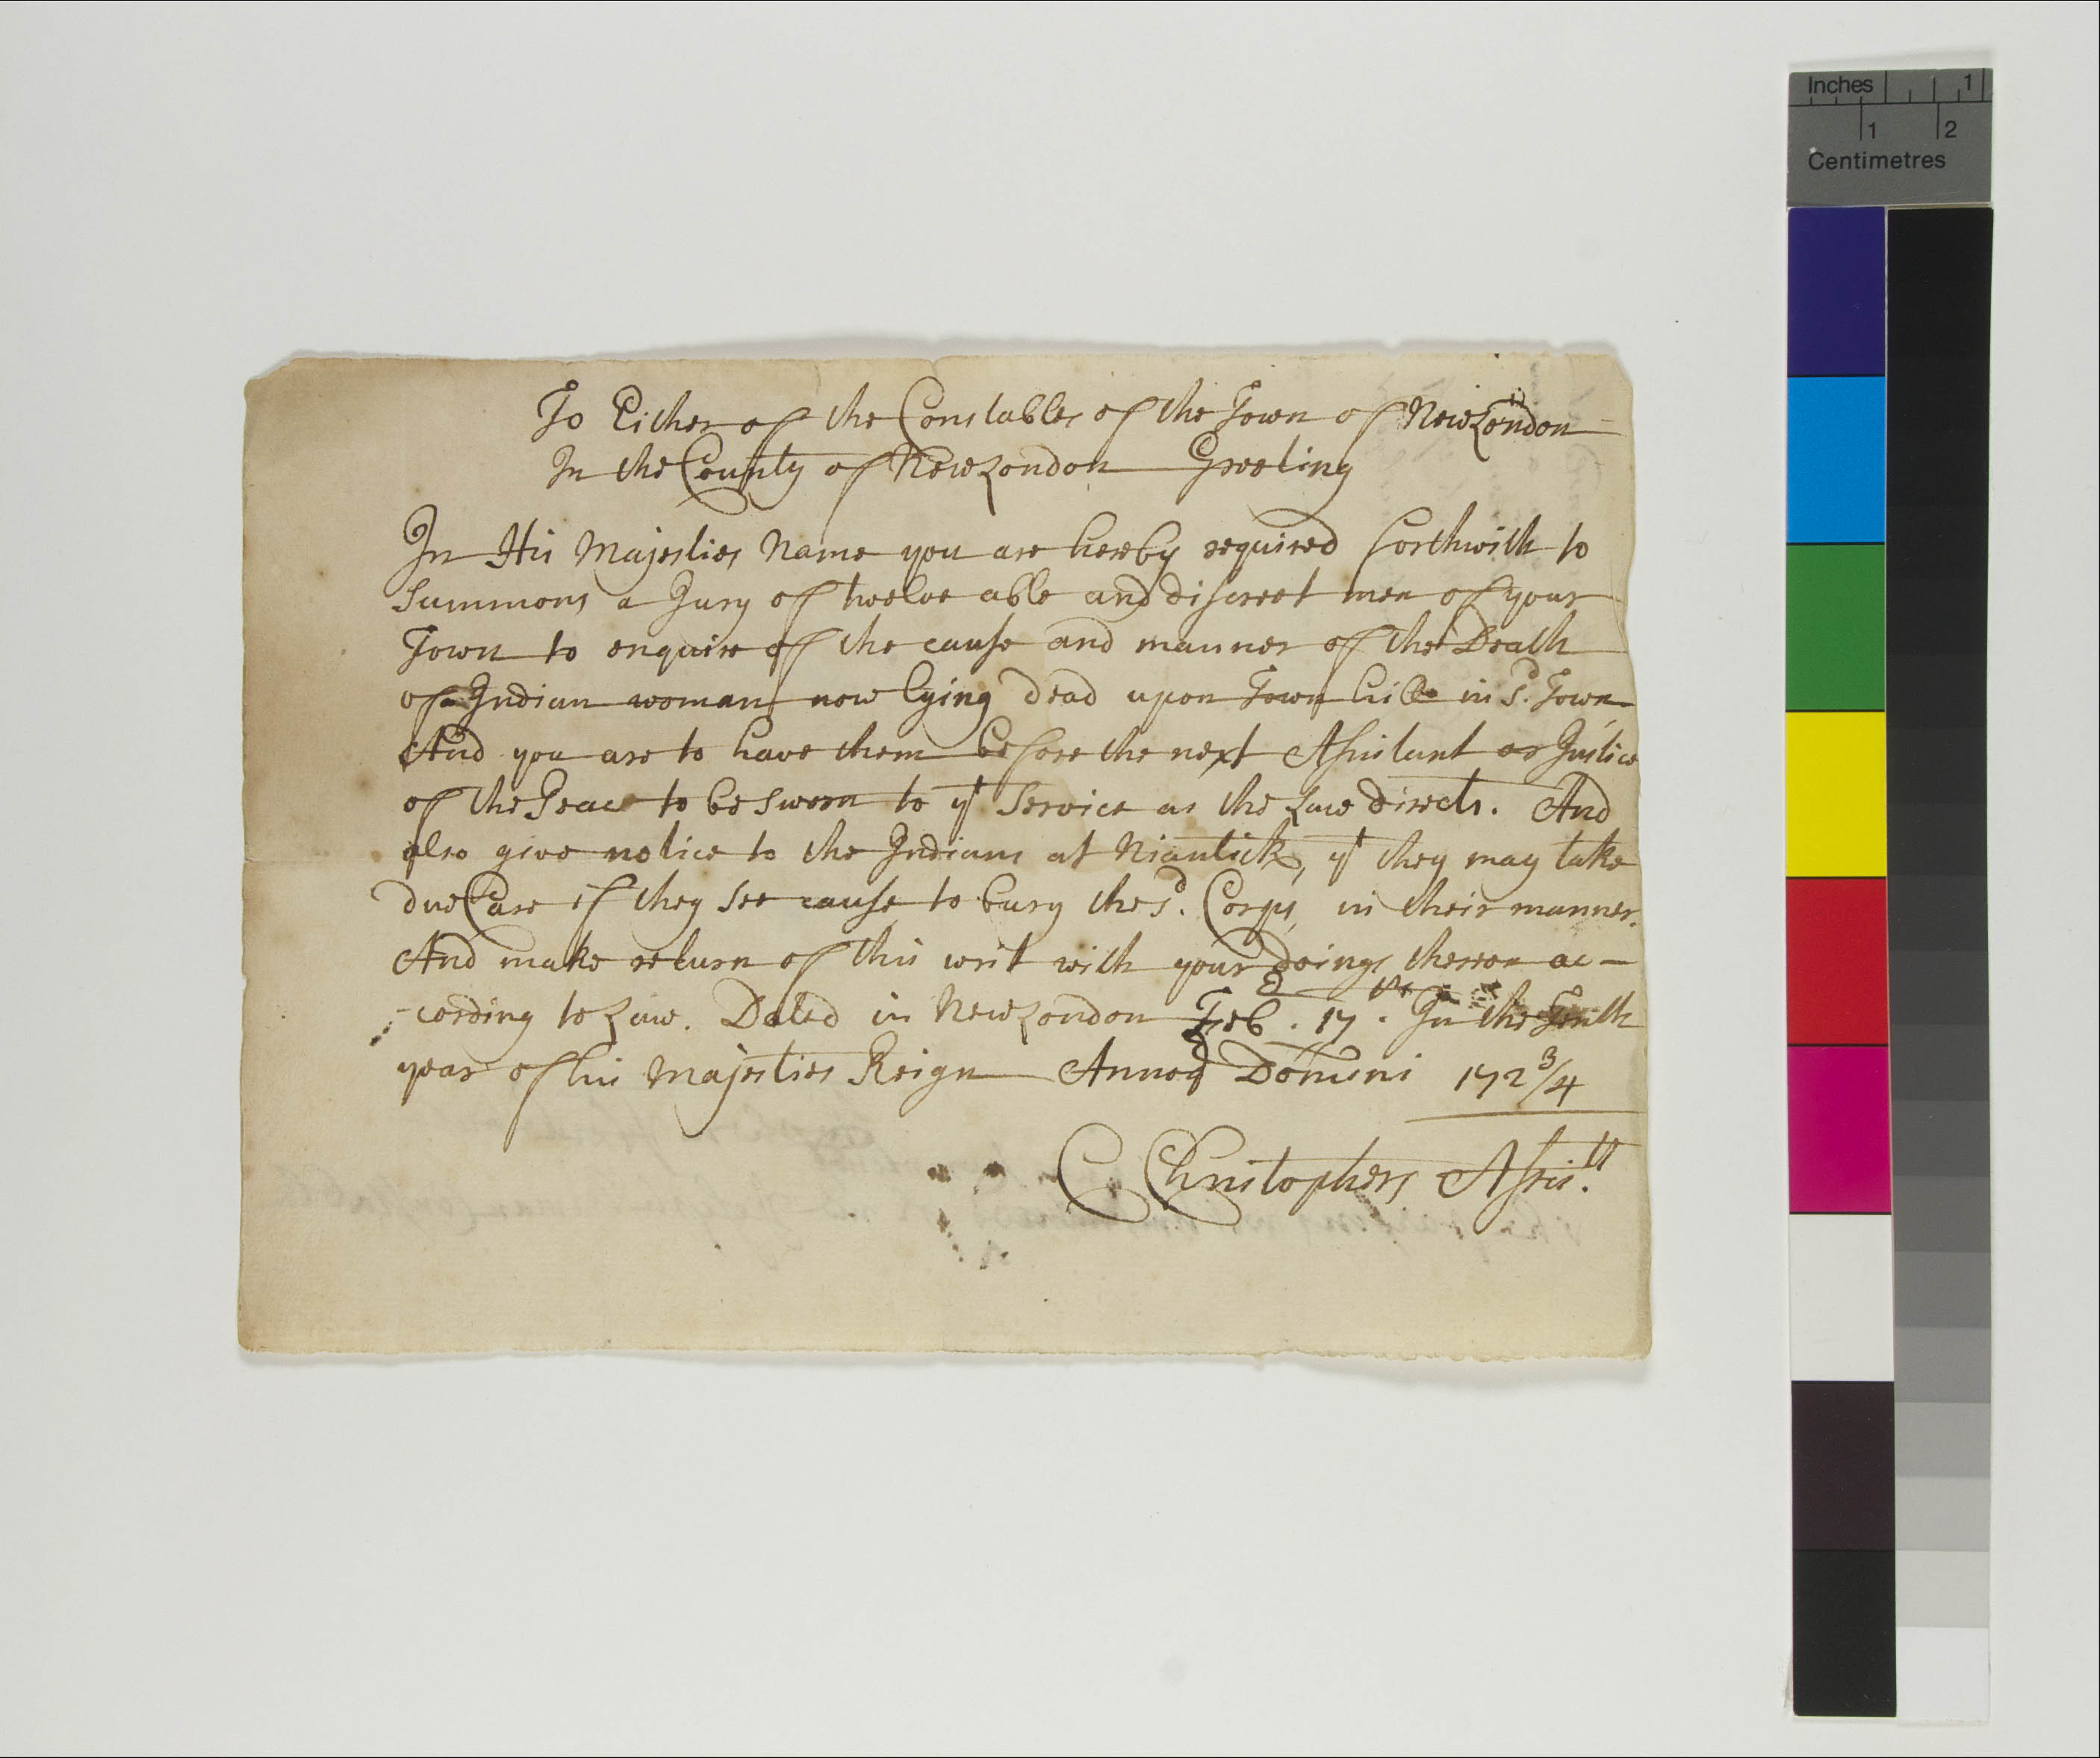 To Either of the Constables of the Town of New London
In the County of New London Greeting
In His Majesties Name you are hereby required forthwith to
Summons a Jury of twelve able and discreet men of your
Town to enquire of the cause and manner of the Death
of a Indian woman now lying dead upon Town hill in sd. Town
And you are to have them before the next Assistant or Justice
of the Peace to be sworn to yt Service as the Law directs. And
also give notice to the Indians at Niantick, yt they may take
due Care if they see cause to bury the sd. Corps, in their manner.
And make return of this writ with your doings thereon ac-
-cording to Law. Dated in New London Feb. 17th. In the Tenth
year of his Majesties Reign Annoq Domini 172 3/4
C Christophers Assistt.
Inches 1
1 2
Centimetres